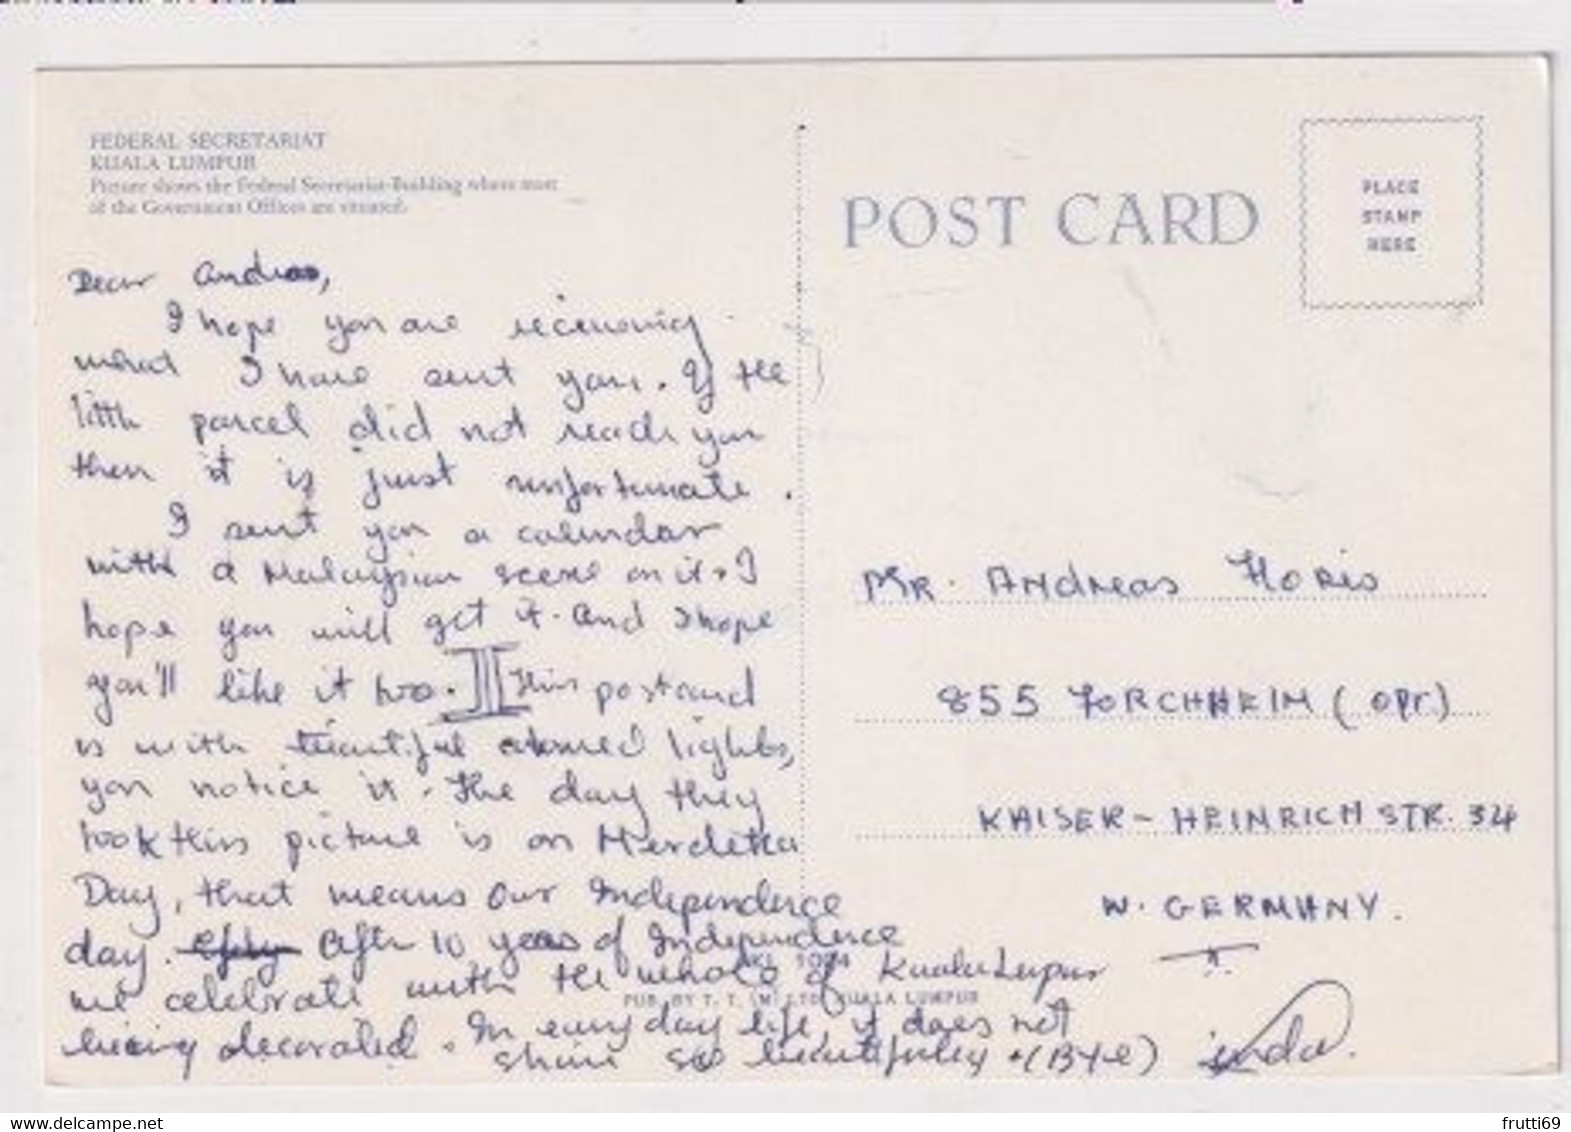 FEDERAL SECRETARIAT
KUALA LUMPUR
Picture shows the Federal Secretariat Building where most
of the Government Offices are situated.
POST CARD
PLACE
STAMP
HERE
Dear Andreas,
I hope you are receiving
what I have sent you. If the
little parcel did not reach you
then it is just unfortunate.
I sent you a calendar
with a Malaysian scene on it. I
hope you will get it. And I hope
you'll like it too. II This postcard
is with beautiful coloured lights,
you notice it. The day they
took this picture is on Merdeka
Day, that means our Independence
day. After 10 years of Independence
we celebrate with the whole of Kuala Lupur
being decorated. In everyday life, it does not
shine so beautifully. (Bye)
PUB. BY T. T. (M) LTD KUALA LUMPUR
MR. ANDREAS HORIS
855 FORCHHEIM (OPF.)
KAISER-HEINRICH STR. 34
W. GERMANY.
www.delcampe.net
frutti69